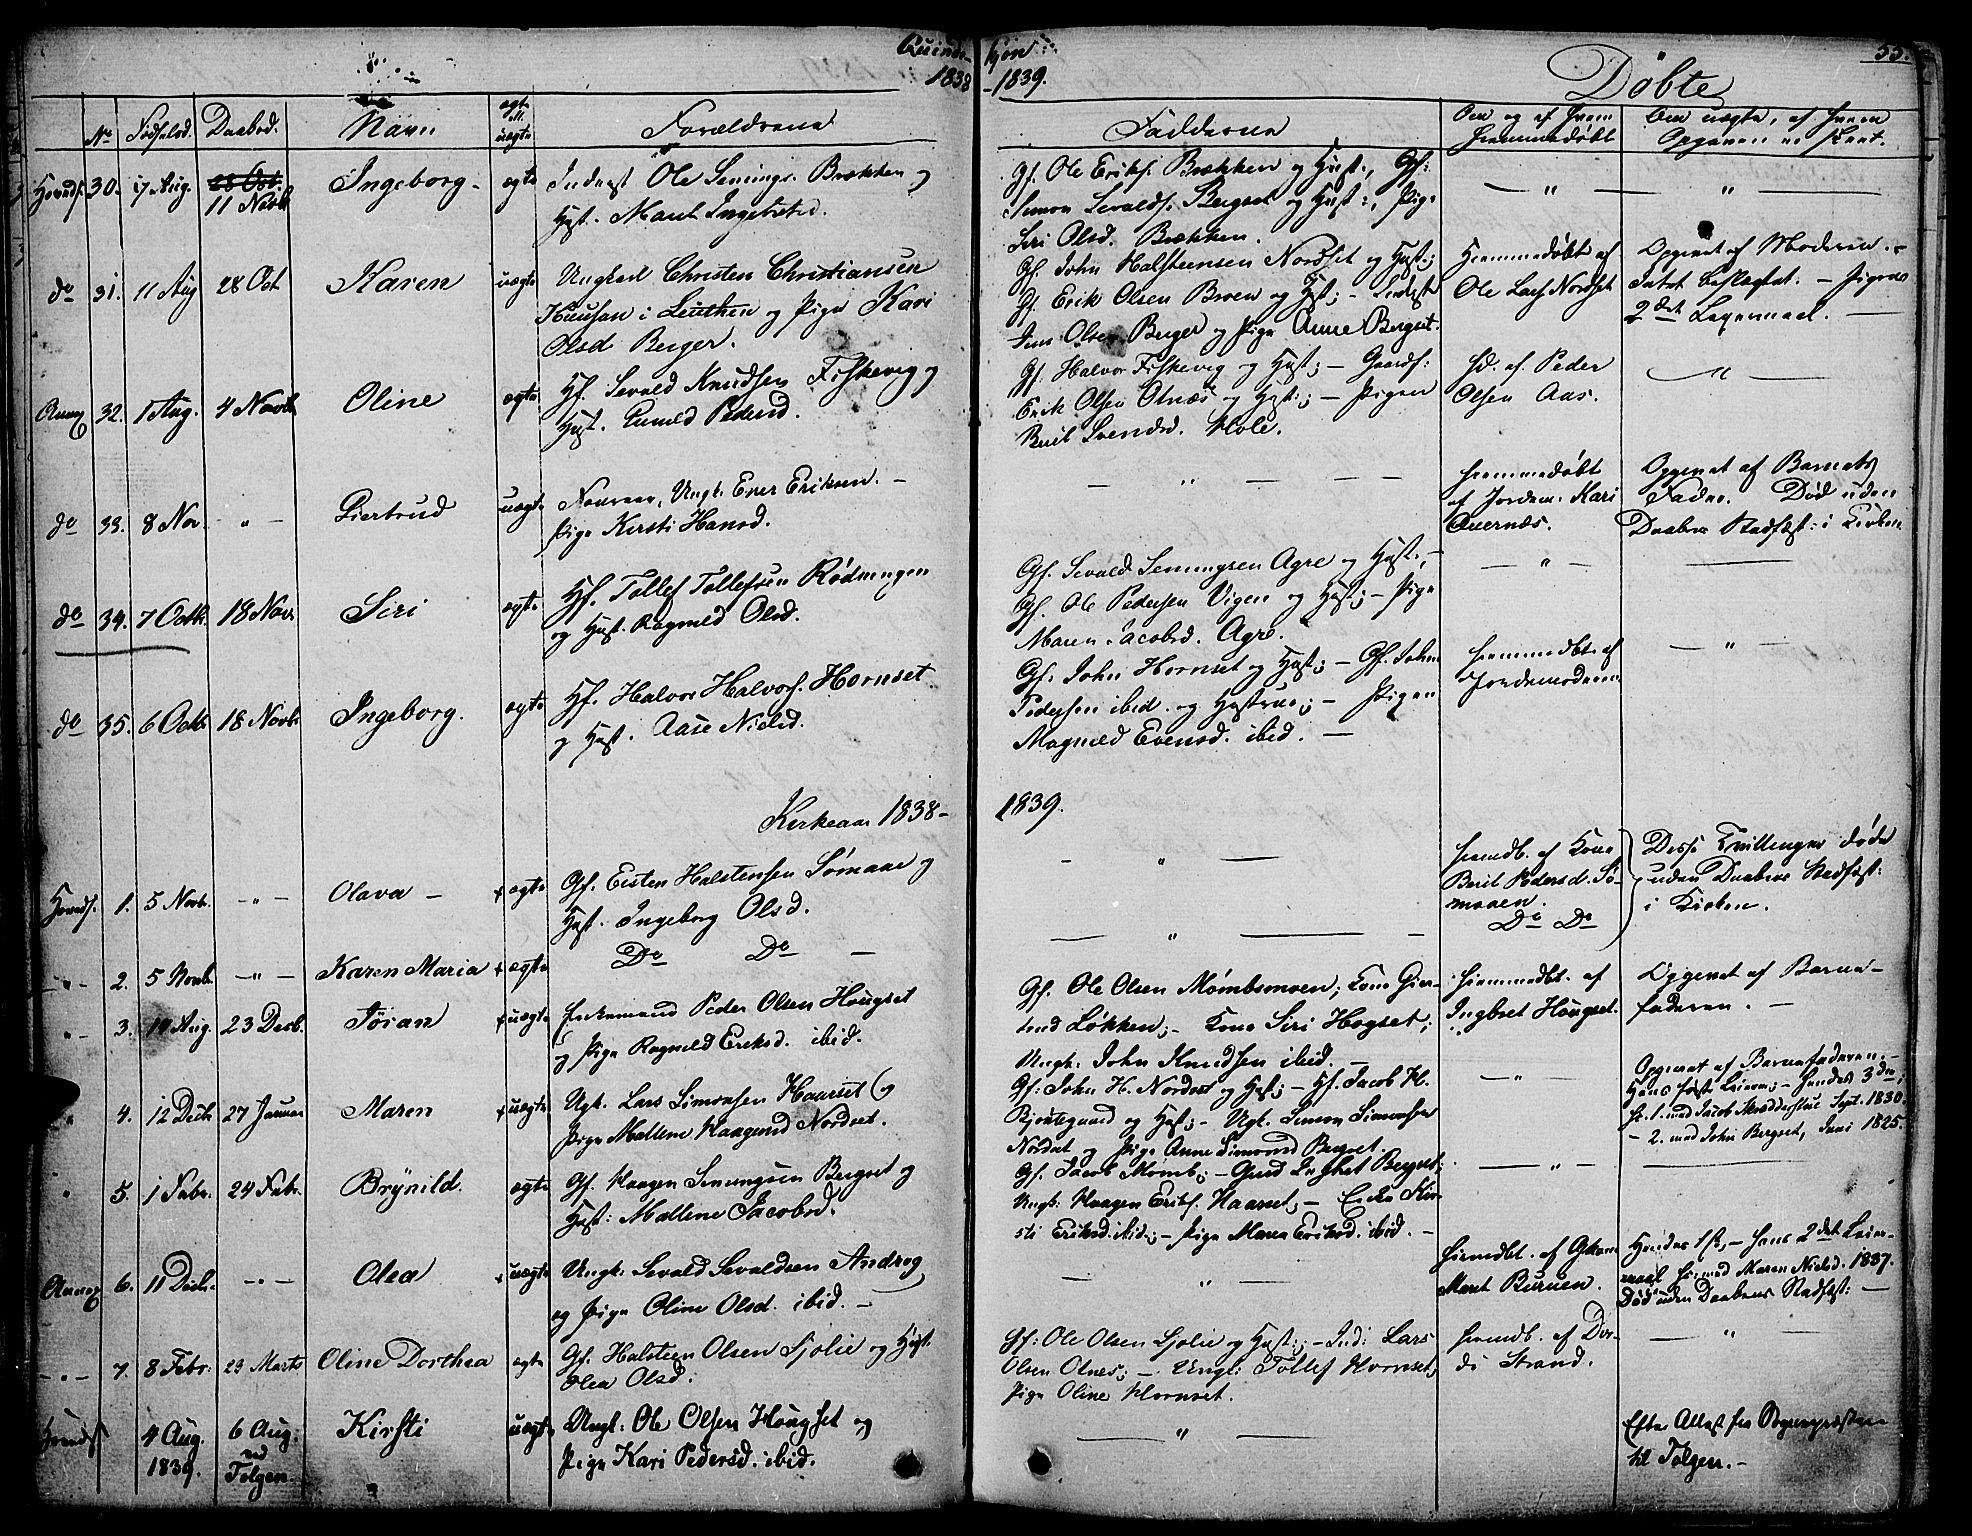 Quinde-kjøn
1838-1839.
Döbte
55.
No Fødselsd. Daabsd. Navn ægte ell. uægte Forældrene
Fadderne Om og af hvem hjemmedøbt Om uægte, af hvem Opgaven er skeet.
Hoveds. 30. 17 Aug. 28 Oct. 11 Novb Ingeborg ægte Inderst Ole Brækken og
Hust. Marit Ingebretsd.
Gf. Ole Eriks. Brækken og Hust., Gf:
Simon Sevalds. Bergset og Hust:, Pige
Siri Olsd. Brækken.
do 31. 11 Aug 28 Oct Karen uægte Ungkarl Christen Christiansen
i Leuthen og Pige Kari
Olsd Berger.
Gf. John Halsteensen Nordset og Hust.;
Gf. Erik Olsen Broen og Hst; -
Olsen Berger og Pige Anne Bergset.
Hjemmedøbt af
Ole Nordset
Opgivet af Moderen. -
Intet beslægtet. - Pigens
2det Leiermaal. -
Annex 32. 1 Aug. 4 Novb Oline ægte Hf. Sevald Knudsen Fiskevig og
Hust. Gunild Pedersd.
Gf. Halvor Fiskevig og Hust; - Gaards:
Erik Olsen Otnæs og Hust:; - Pigen
Berit Svendsd. Hole.
Hd. af Peder
Olsen Aas.
do 33. 8 Nov. - " - Giertrud uægte Ungk. Ener Eriksen. -
Pige Kirsti Hansd.
- " - - -
hjemmedøbt
af Jordem: Kari
Qvernæs.
Opgivet af Barnets
Fader. Død uden
Daabens Stadfæst: i Kirken
do 34. 7 Octb. 18 Novb. Siri ægte Hf. Tollef Tollefsen Rødningen
og Hust. Ragnild Olsd.
Gf. Sevald Semingsen Agre og Hust., -
Gf. Ole Pedersen Vigen og Hust.; - Pige
Maren Jacobsd. Agre.
do 35. 6 Octb. 18 Novb. Ingeborg. ægte Hf. Halvor Halvors. Hornset
og Hust. Aase Nielsd.
Gf. John Hornset og Hust; - Gf. John
Pedersen ibid. og Hustrue; - Pigen
Magnild Evensd. ibid. -
hjemmedbt. af
Jordemoderen
Kirkeaar 1838-1839.
Hovds. 1. 5 Novb. - " - Olava - ægte Gf. Eisten Halstensen Sømaae og
Hust. Ingeborg Olsd.
hjemdb. af Kone
Berit Pedersd. Sø-
maaen.
Do Do
Disse Tvillinger døde
uden Daabens Stadfæst:
i Kirken.
- " - 2. 5 Novb. - " - Karen Maria ægte Do Do -
" - 3. 19 Aug. 23 Decb. Jöran uægte Enkemand Peder Olsen Hougset
og Pige Ragnild Eriksd. ibid.
Gf. Ole Olsen Mømbsmoen; Kone Gier-
trud Løkken; - Kone Siri Hogset;
Ungk. John Knudsen ibid. -
hjemmedbt. af
Ingbret Hougset.
Opgivet af Barne-
faderen. -
" 4. 12 Decb 27 Januar Maren uægte Ugk. Lars Simonsen Haarset og
Pige Mallene Haagensd Nordset.
Gf. John H. Nordset og Hust; - Hf. Jacob H.
Bjontegaard og Hust; - Ugk. Simon Simonsen
Nordset og Pige Anne Simonsd Bergset.
- " -
Opgivet af Barnefaderen. -
Hans først Leierm; - hendes 3die;
1. med Jacob Sept. 1830.
- 2. med John Bergset, Juni 1825.
" 5. 1 Febr. 24 Febr. Brynild. ægte Gf. Haagen Semingsen Bergset og
Hust: Mallene Jacobsd.
Gf. Jacob Momb; - Bergset;
Ungk: Haagen Eriks. Haarset; - Enke Kir-
sti Eriksd. ibid; - Pige Maren Eriksd. ibid. -
Annex 6. 11 Decb. - " - Olea uægte Ungk. Sevald Sevaldsen Androg
og Pige Oline Olsd. ibid. -
- " -
hjemdbt. af Gkone
Marit Buruen.
Hendes 1ste, - hans 2det Leier-
maal med Maren Nielsd. 1837.
Død uden Daabens Stadfæst: -
- " - 7. 8 Febr: 23 Marts Oline Dorthea ægte Gf. Halsteen Olsen Sjølie og Hust.
Olea Olsd.
Gf: Ole Olsen Sjølie og Hust:; - Ind: Lars
Olsen Otnes; - Ungk: Tollef Hornset;
Pige Oline Hornset.
hjemdb. af Dor-
di Strand.
- " -
Hovds 4 Aug. 1839. 6 Aug: ved Tolgen. Kirsti uægte Ungk: Ole Olsen Hougset og
Pige Kari Pedersd. ibid.
- " -
Efter Attest fra Sognepræsten
til Tolgen. -